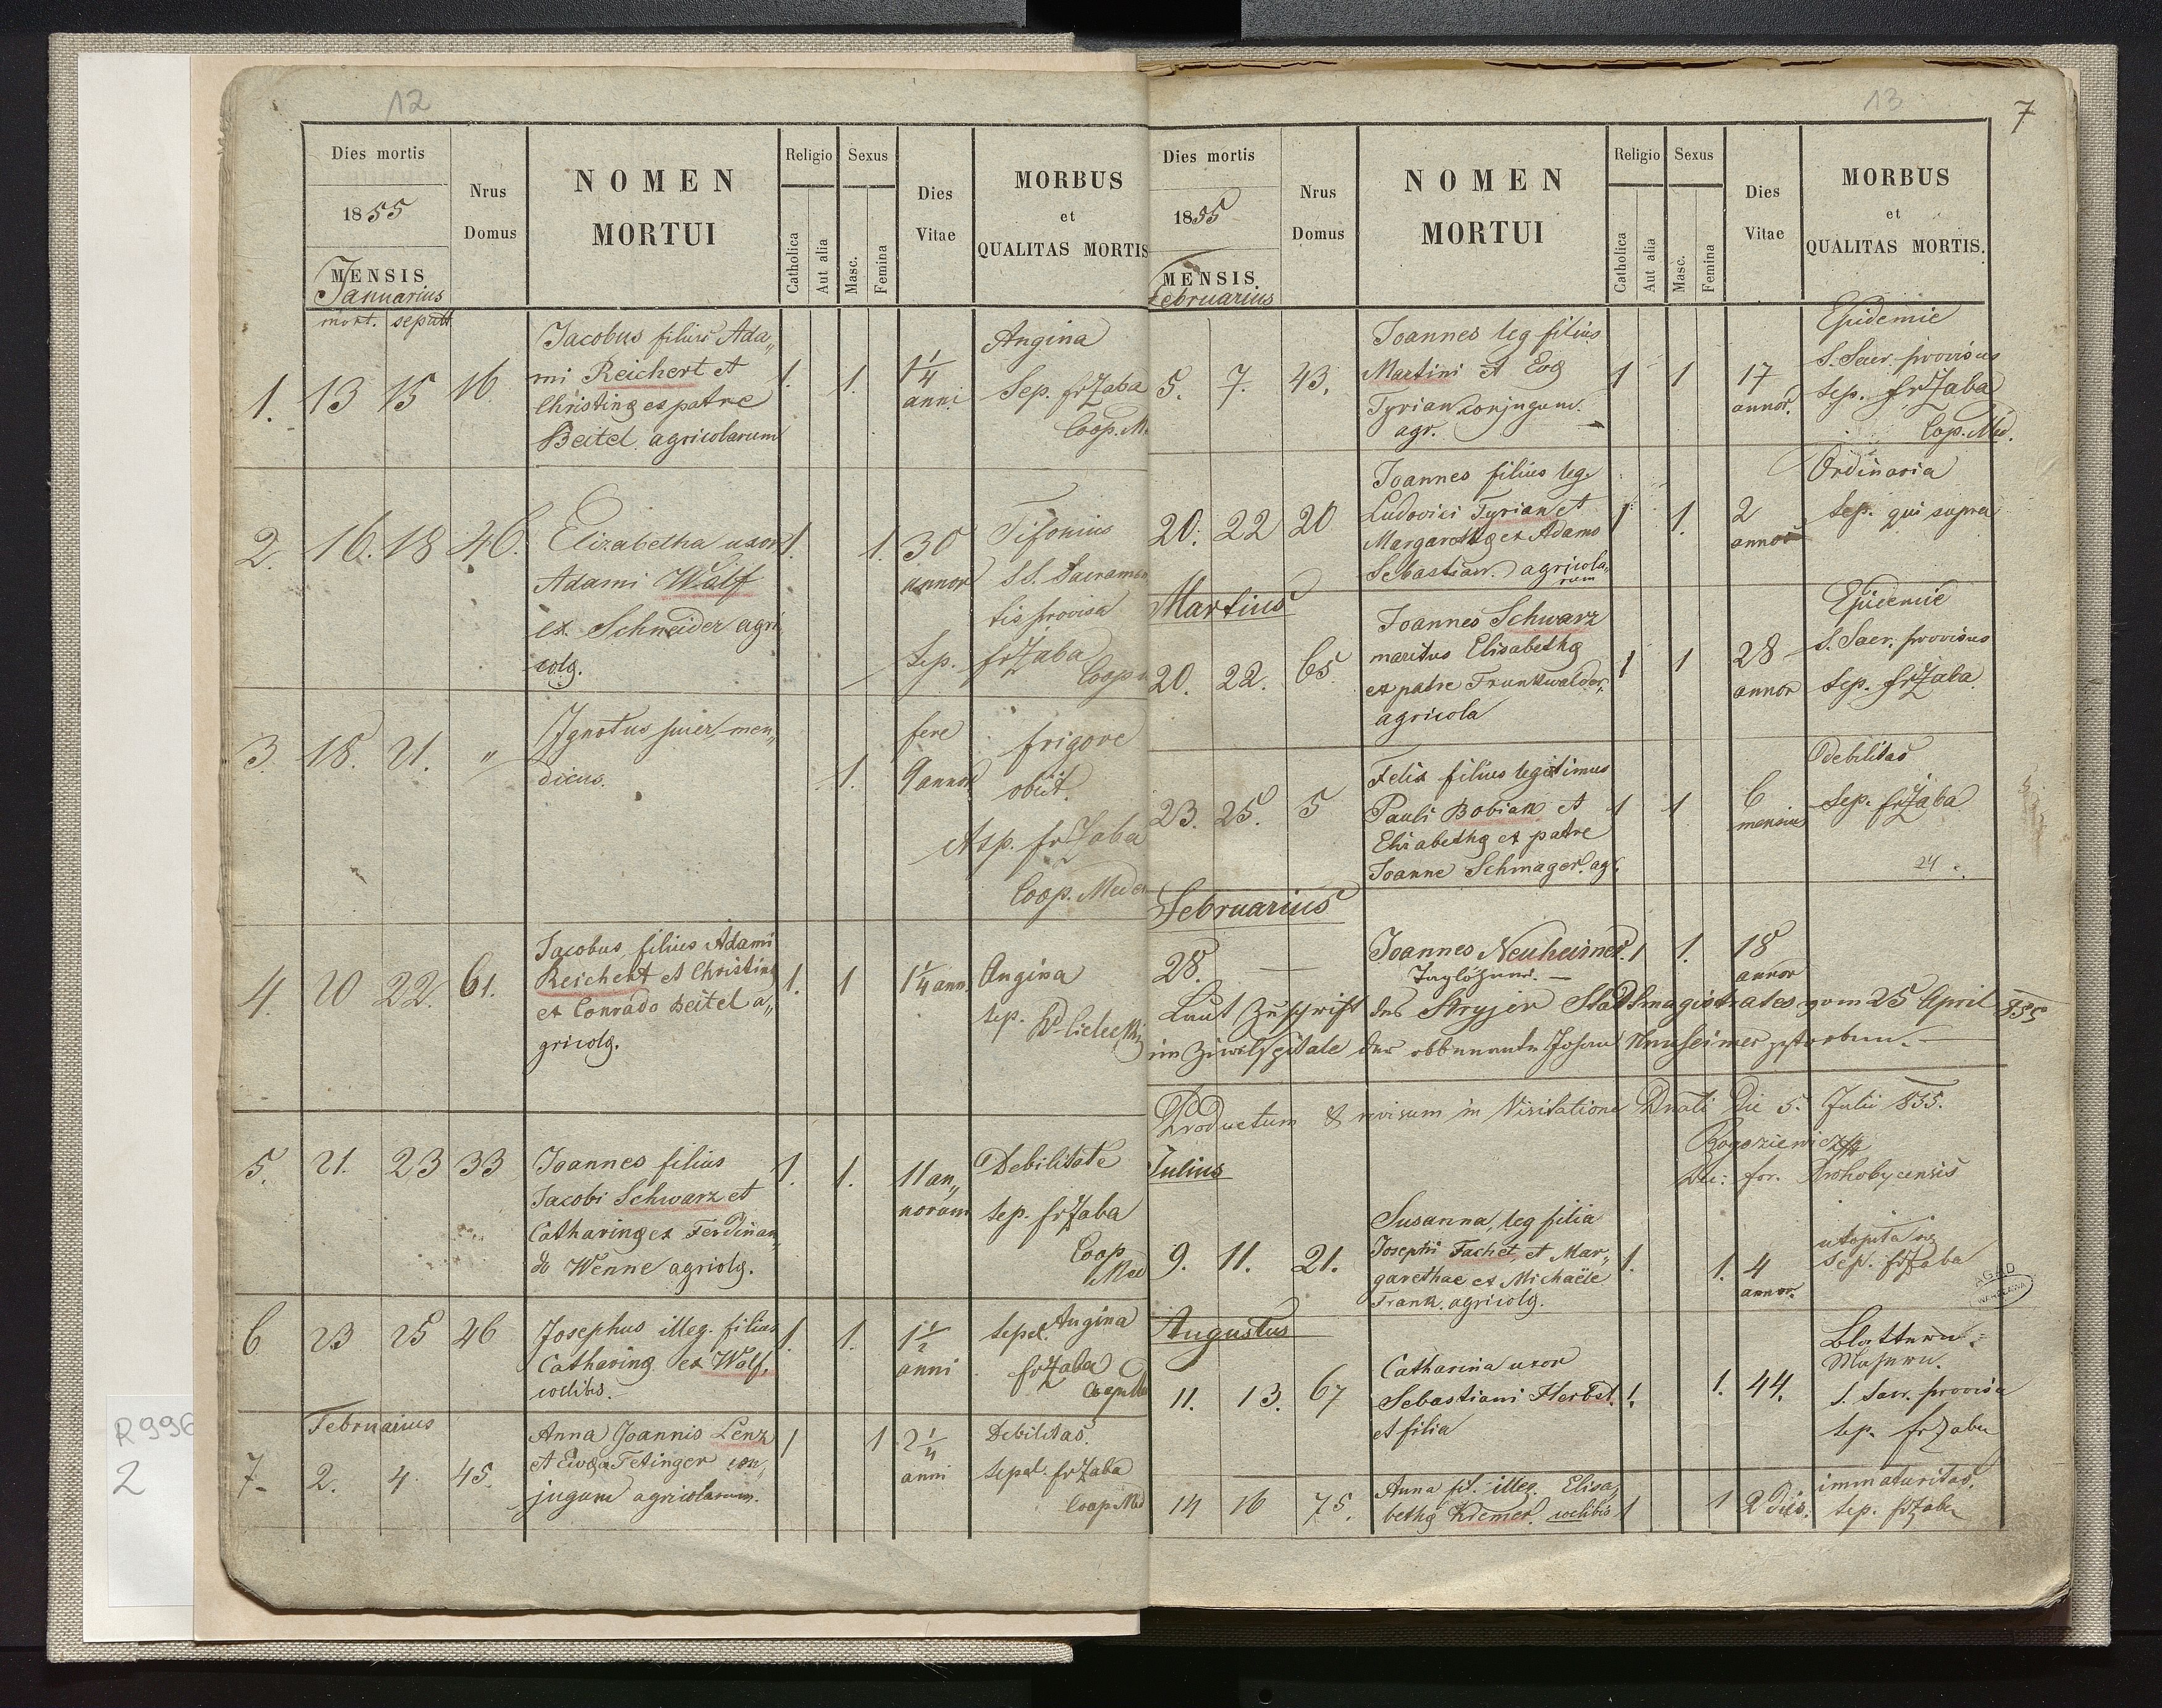 12
Dies mortis
1855
MENSIS
Januarius
mort. sepult.
Nrus
Domus
NOMEN
MORTUI
Religio
Catholica
Aut alia
Sexus
Masc.
Femina
Dies
Vitae
MORBUS
et
QUALITAS MORTIS
1. 13 15 16
Jacobus filius Ada„
mi Reichert et
Christinę ex patre
Beitel agricolarum
1. 1. 1 1/4
anni
Angina
Sep. fr Żaba
Coop. M
2. 16. 18 46.
Elizabetha uxor
Adami Walf
ex Schneider agri
colę.
1. 1. 30
annor
SS. Sacramen
tis provisa
Sep. fr Żaba
Coop
3. 18. 21. „
Ignotus puer men„
dicus.
1. fere
9 annor
frigore
obiit.
fr Żaba
Coop. Meden
4. 20 22. 61.
Jacobus, filius Adami
Reichert et Christinę
ex Conrado Beitel a„
gricolę.
1. 1 1 1/4 ann.
Angina
sep.
5. 21. 23 33
Joannes filius
Jacobi Schwarz et
Catharinę ex Ferdinan„
do Wenne agricolę.
1. 1. 11 an„
norum
Debilitate
sep. fr Żaba
Coop
Med
6 23 25 46
Josephus illeg. filius
Catharinę ex Wolf,
coelibis.
1. 1. 1 1/2
anni
Angina
sepel.
fr Żaba
Coop Me
Februarius
7. 2. 4. 45.
Anna Joannis Lenz
et Evę a Tetinger con„
jugum agricolarum.
1 1 2 1/4
anni
Debilitas.
sepel. fr Żaba
Coop Med
R996
2
13
7
Dies mortis
1855
MENSIS
Februarius
Nrus
Domus
NOMEN
MORTUI
Religio
Catholica
Aut alia
Sexus
Masc.
Femina
Dies
Vitae
MORBUS
et
QUALITAS MORTIS.
5. 7. 43.
Joannes leg filius
Martini et Evę
Tyrian conjugum.
agr.
1 1 17
annor.
Epidemie
S. Sacr. provisus
sep. fr Żaba
Cop. Med.
20. 22 20
Joannes filius leg.
Ludovici Tyrian et
Margarethę ex Adamo
Sebastian. agricola„
rum
1 1. 2
annor
Ordinaria
Sep. qui supra
Martius
20. 22. 65.
Joannes Schwarz
maritus Elisabethę
ex patre Trunkwalder,
agricola
1 1 28
annor
Epidemie
S. Sacr. provisus
Sep. fr Żaba
23. 25. 5
Felix filius legitimus
Pauli Bobian et
Elisabethę ex patre
Joanne Schmager. ag.
1 1 6
mensium
Debilitas
Sep. fr Żaba
24
Februarius
28. —
Joannes Neuheimer.
Taglöhner. —
1 1. 18
annor
Laut Zuschrift des Stryjer Stadtmagistrates vom 25 April 855
im Zivilspitale der obbenannte Johann Neuheimer gestorben. —
Productum & revisum in Visitatione Dnali Die 5. Julii 855.
Julius
for. Drohobycensis
9. 11. 21.
Susanna, leg filia
Josephi Fachet, et Mar„
garethae ex Michaële
Frank. agricolę.
1. 1. 4
annor.
sep. fr Żaba
AGAD
WARSZAWA
Augustus
11. 13. 67
Catharina uxor
Sebastiani Herbst.
et filia
1. 1. 44.
Blattern
S. Sacr. provisa
sep. fr Żaba
14 16 75.
Anna fil. illeg. Elisa„
bethę Kremer. coelibis
1 1 2 dies.
immaturitas.
sep. fr Żaba